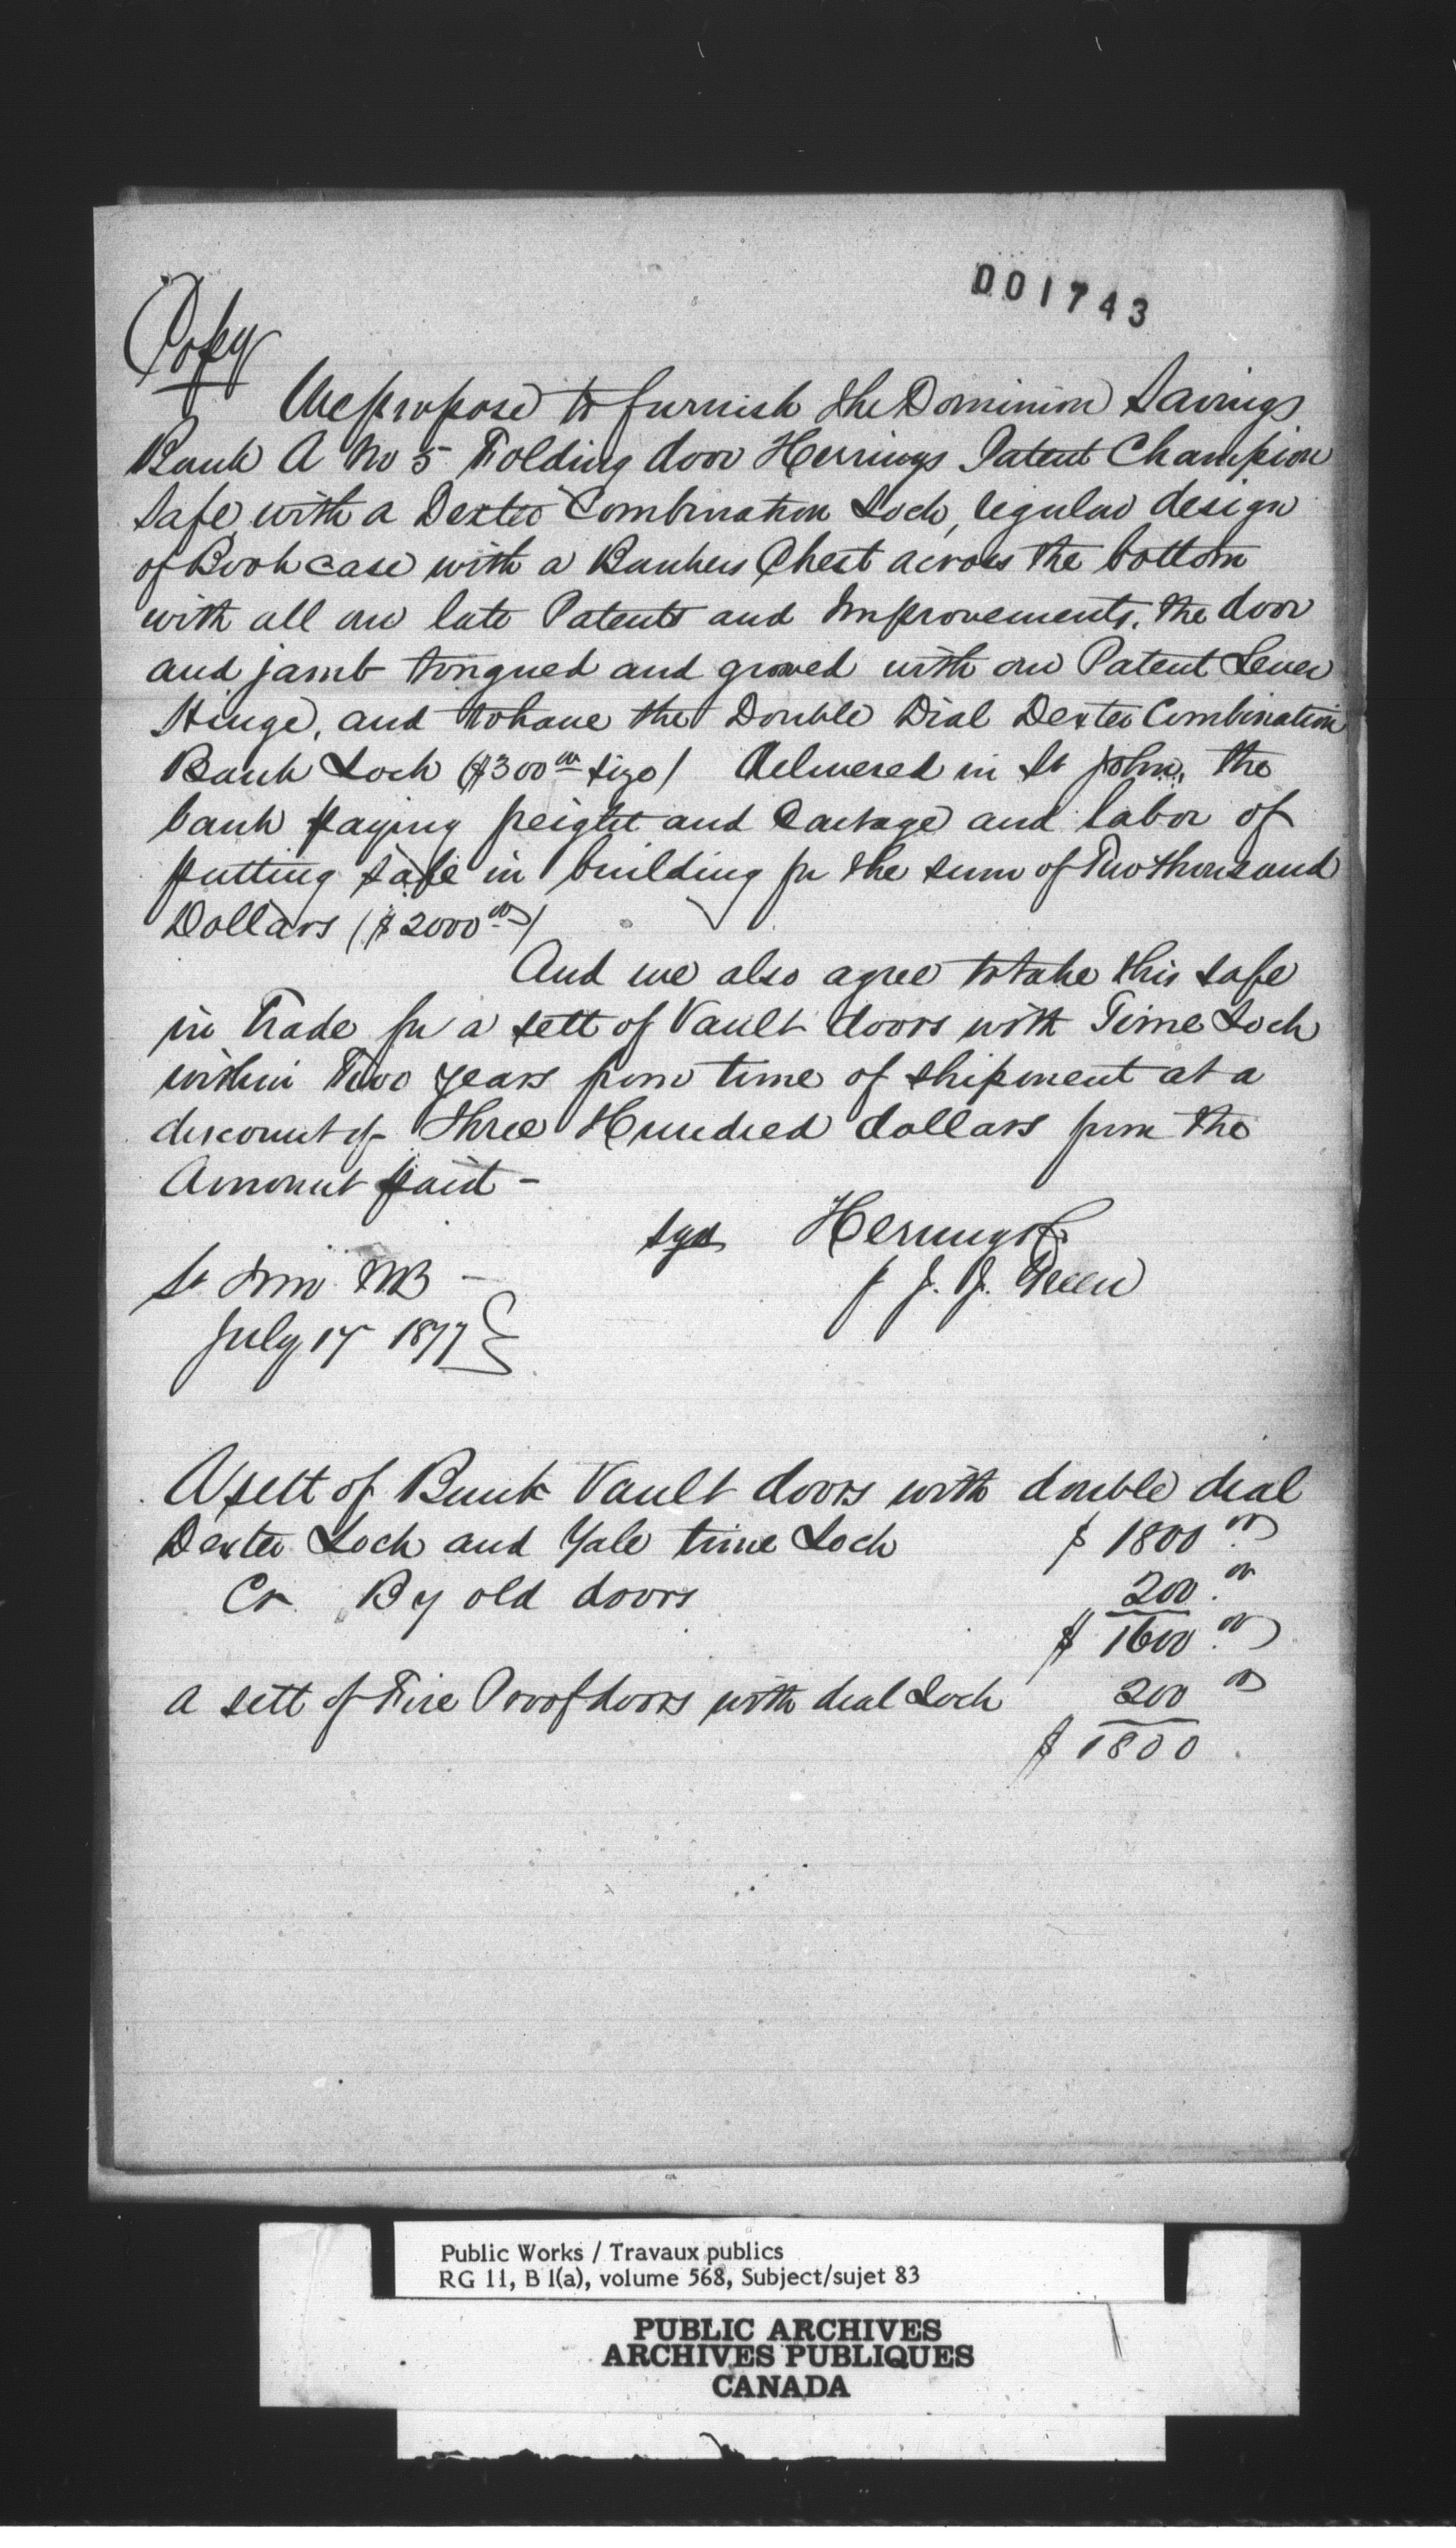 001743
Copy
We propose to furnish the Dominion Savings
Bank A No 5 Folding door Herrings Patent Champion
Safe with a Dexter Combination Lock, regular design
of Book case with a Bankers Chest across the bottom
with all our late Patents and Improvements, the door
and jamb tongued and groved with our Patent Lever
Hinge, and to have the Double Dial Dexter Combination
Bank Lock ($300 00 size) delivered in St John, the
bank paying freight and Cartage and labor of
putting safe in building for the sum of Two thousand
Dollars ($2000 00)
And we also agree to take this safe
in Trade for a sett of Vault doors with Time Lock
within Two years from time of shipment at a
discount of Three Hundred dollars from the
Amount paid -
sgd Herring & Co
p J. J. Green
St John NB -
July 17 1877
A sett of Bank Vault doors with double dial
Dexter Lock and Yale time Lock $ 1800 00
Cr By old doors 200 00
$ 1600 00
a sett of Fire Proof doors with dial Lock 200 00
$ 1800
Public Works / Travaux publics
RG 11, B 1(a), volume 568, Subject/sujet 83
PUBLIC ARCHIVES
ARCHIVES PUBLIQUES
CANADA